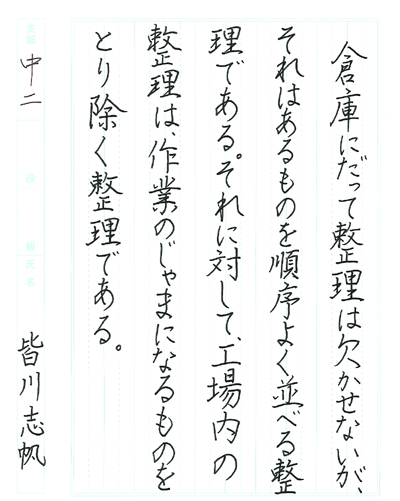 倉庫にだって整理は欠かせないが、
それはあるものを順序よく並べる整
理である。それに対して、工場内の
整理は、作業のじゃまになるものを
とり除く整理である。
中二
氏名
皆川志帆